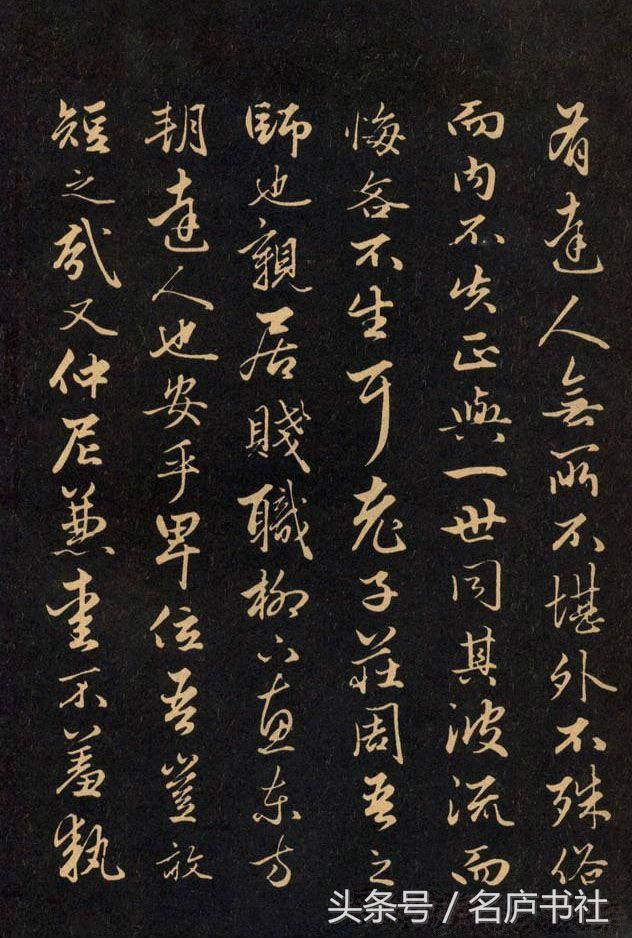 有達人無所不堪外不殊俗
而内不失正與一世同其波流而
悔吝不生耳老子莊周吾之
師也親居賤職柳下惠東方
朝達人也安乎卑位吾豈敢
短之哉又仲尼兼愛不羞執
头条号 / 名庐书社